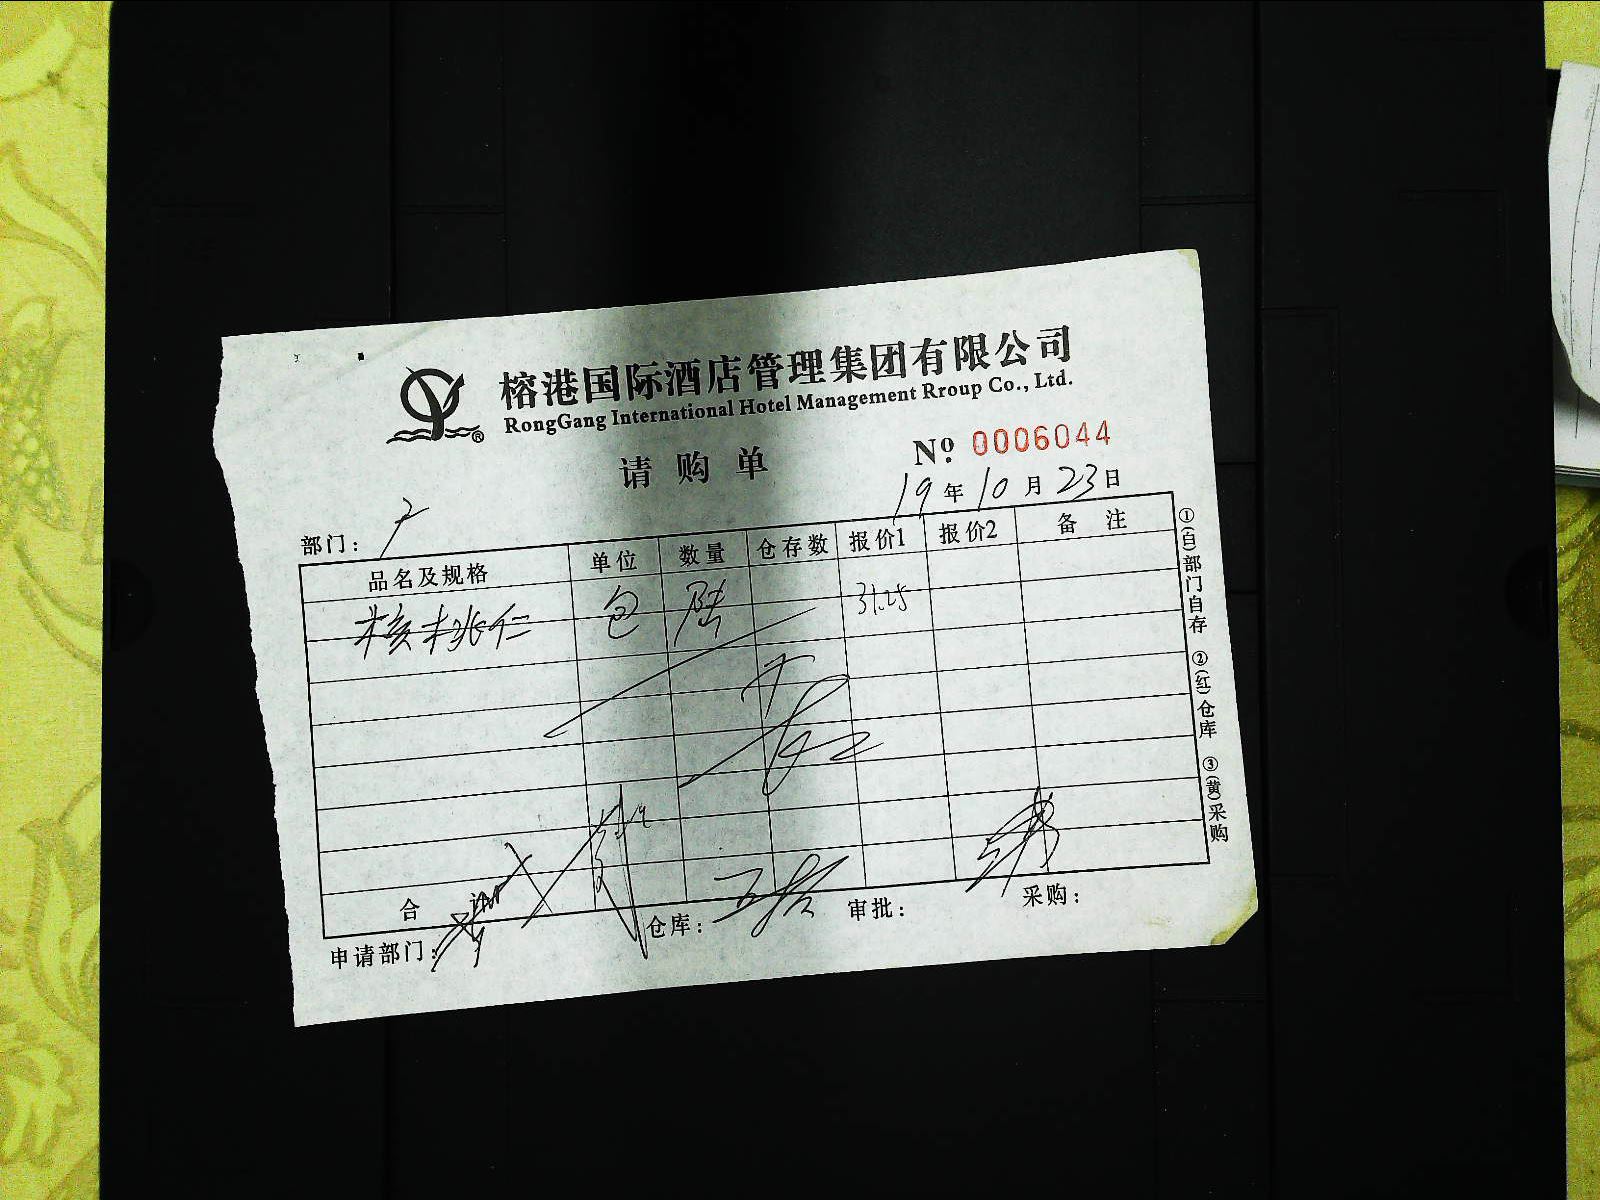 榕港国际酒店管理集团有限公司
RongGang International Hotel Management Rroup Co., Ltd.
请购单
№ 0006044
19年10月23日
部门：
品名及规格 单位 数量 仓存数 报价1 报价2 备注
核桃仁 包 陆 31.25
合
申请部门： 仓库： 审批： 采购：
①(白)部门自存 ②(红)仓库 ③(黄)采购